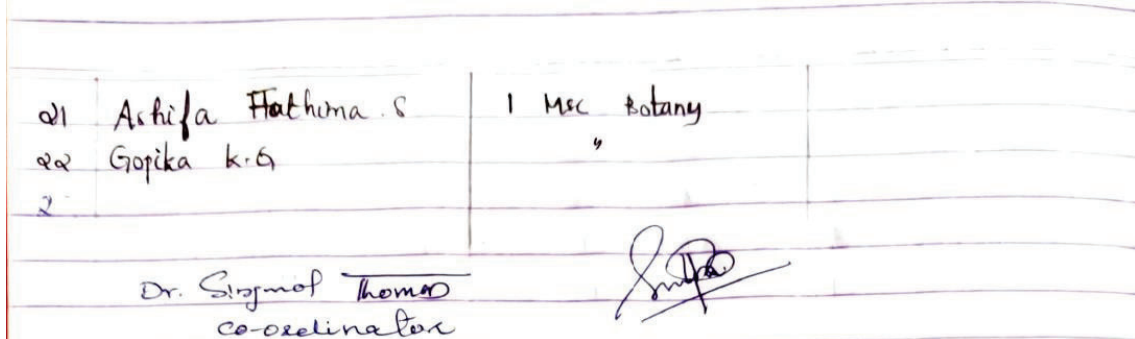 21 Ashifa Fathima . S 1 Msc Botany
22 Gopika K.G "
2
Dr. Thomas
co-ordinator